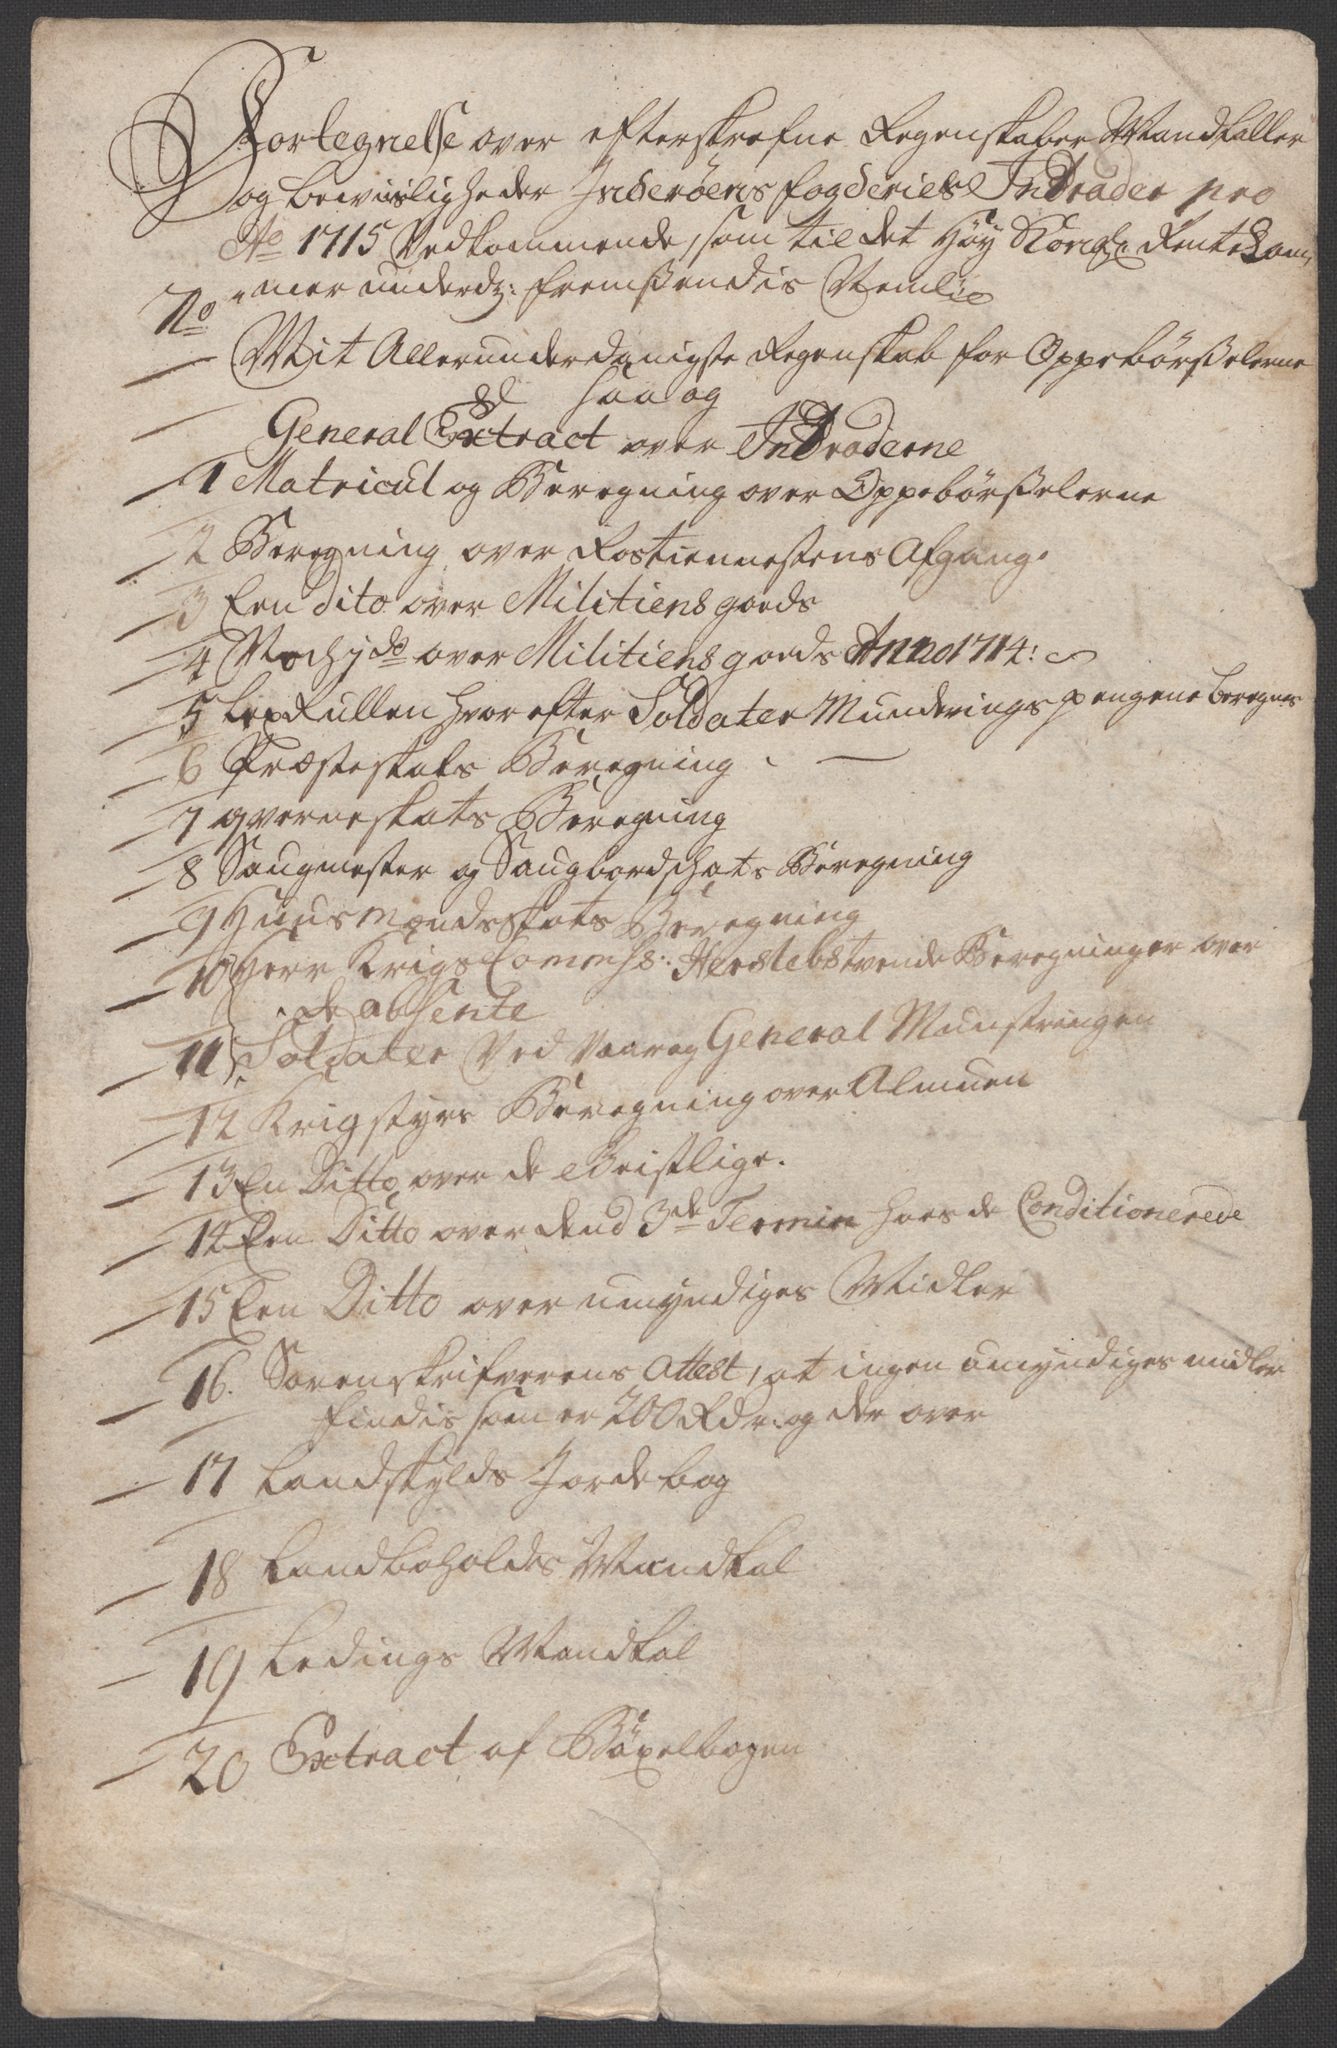 Fortegnelse over efterskrefne Regenskaber Mandtaller
og bewiisligheder Inderöens fogderies Indrader pro
Ao 1715 Vedkommende, som til det Höy Kongl: Rente Cam,
No mer underdg: fremßendis Nemlig
Mit Allerunderdanigste Regenskab for Oppebörßelerne
saa og
General Extract over Indraderne
1 Matricul og Beregning over Oppebörßelerne
2 Beregning over Rostiennestens Afgang.
3 Een dito over Militiens goeds
4 Noch 1 do over Militiens goeds Anno 1714:
5 Leg Rullen hvor efter Soldater Munderings pengene beregnes
6 Præsteskats Beregning
7 Qverneskats Beregning
8 Saugmester og Saugbordschats Beregning
9 Huusmændsskats Beregning
10 Herr Krigs Commiss: Herslebs tvende Beregninger over
de absente
11 Soldater Ved Vaar og General Munstringen
12 Krigstyrs Beregning over Almuen
13 En Ditto over de Geistlige.
14 Een Ditto over dend 3de Termin hoes de Conditionerede
15 Een Ditto over umyndiges Midler
16. Sorenskrifverens Attest, at ingen umyndiges midler
findis som er 200 Rdr: og der over
17 Landskylds Jordebog
18 Landboholds Mandtal
19 Ledings Mandtal
20 Extract af Böxelbogen